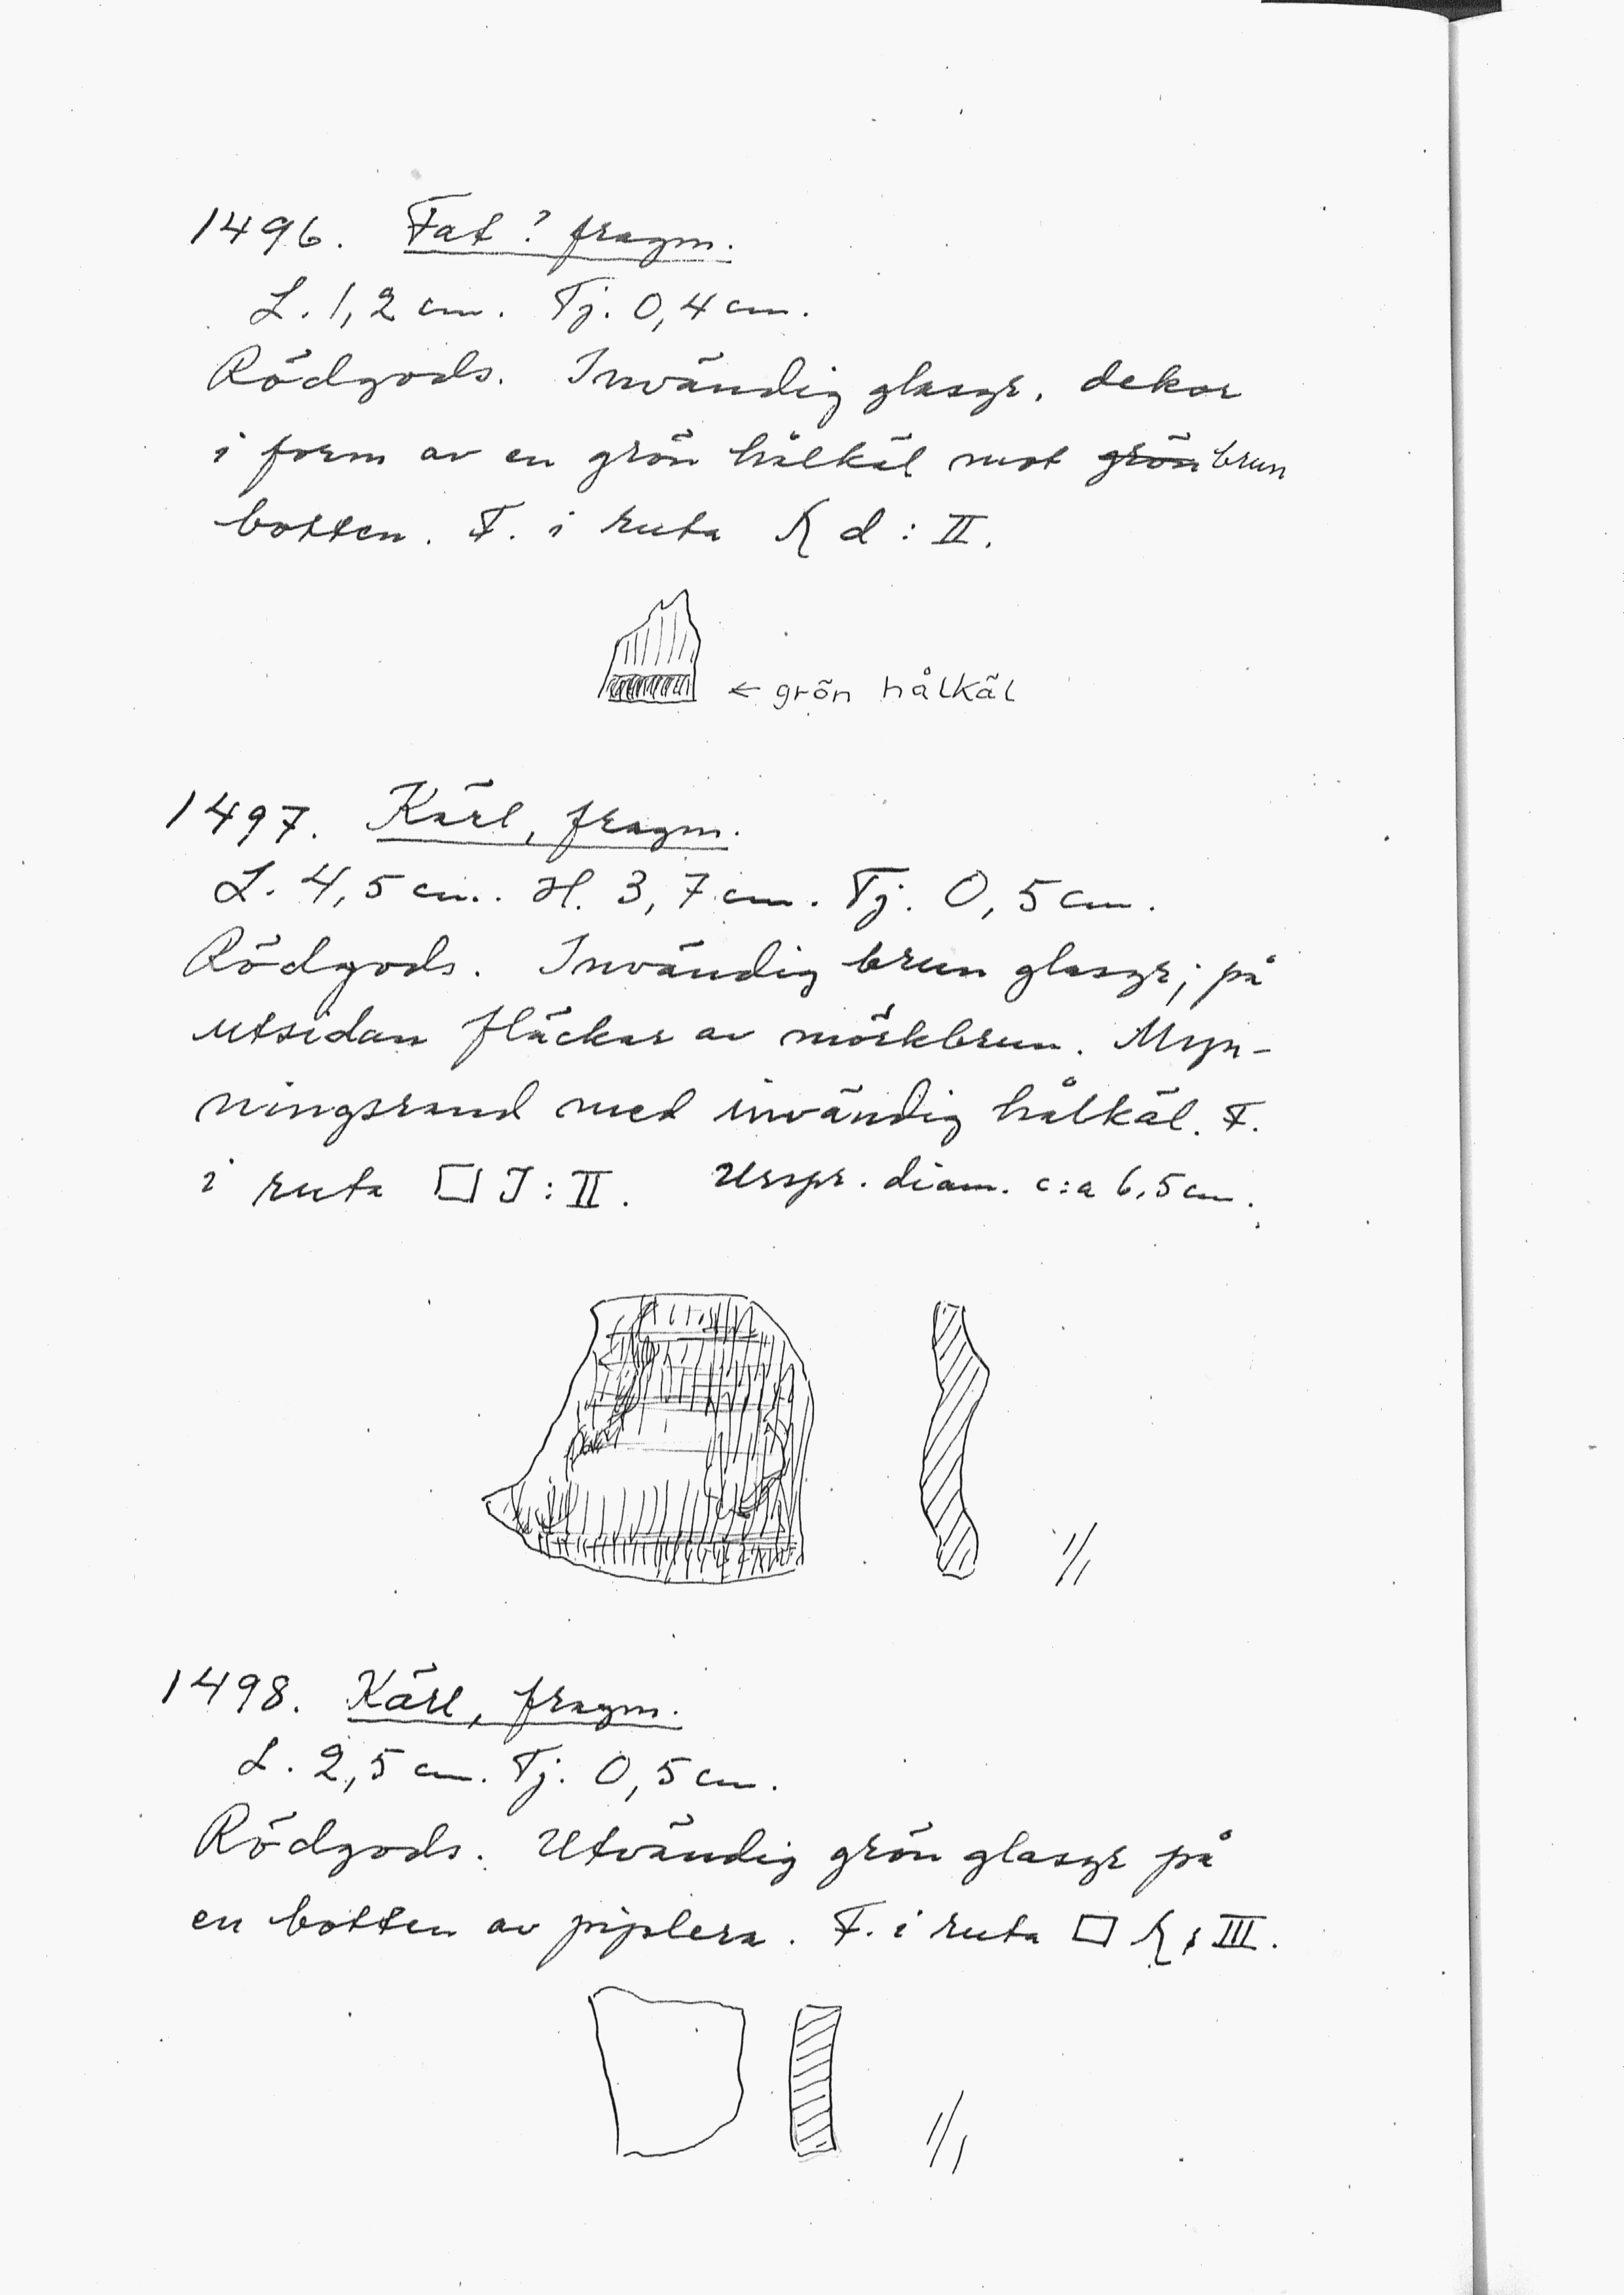 1496. Fat? fragm.
L. 1,2 cm. Tj. 0,4 cm.
Rödgods. Invändig glasyr, dekor
i form av en grön hålkäl mot grön brun
botten. F. i ruta K d : II.
← grön hålkäl
1497. Kärl, fragm.
L. 4,5 cm. H. 3,7 cm. Tj. 0,5 cm.
Rödgods. Invändig brun glasyr; på
utsidan fläckar av mörkbrun. Myn-
ningsrand med invändig hålkäl. F.
i ruta □ J : II. Urspr. diam. c:a 6,5 cm.
1/1
1498. Kärl, fragm.
L. 2,5 cm. Tj. 0,5 cm.
Rödgods. Utvändig grön glasyr på
en botten av piplera. F. i ruta □ K : III.
1/1